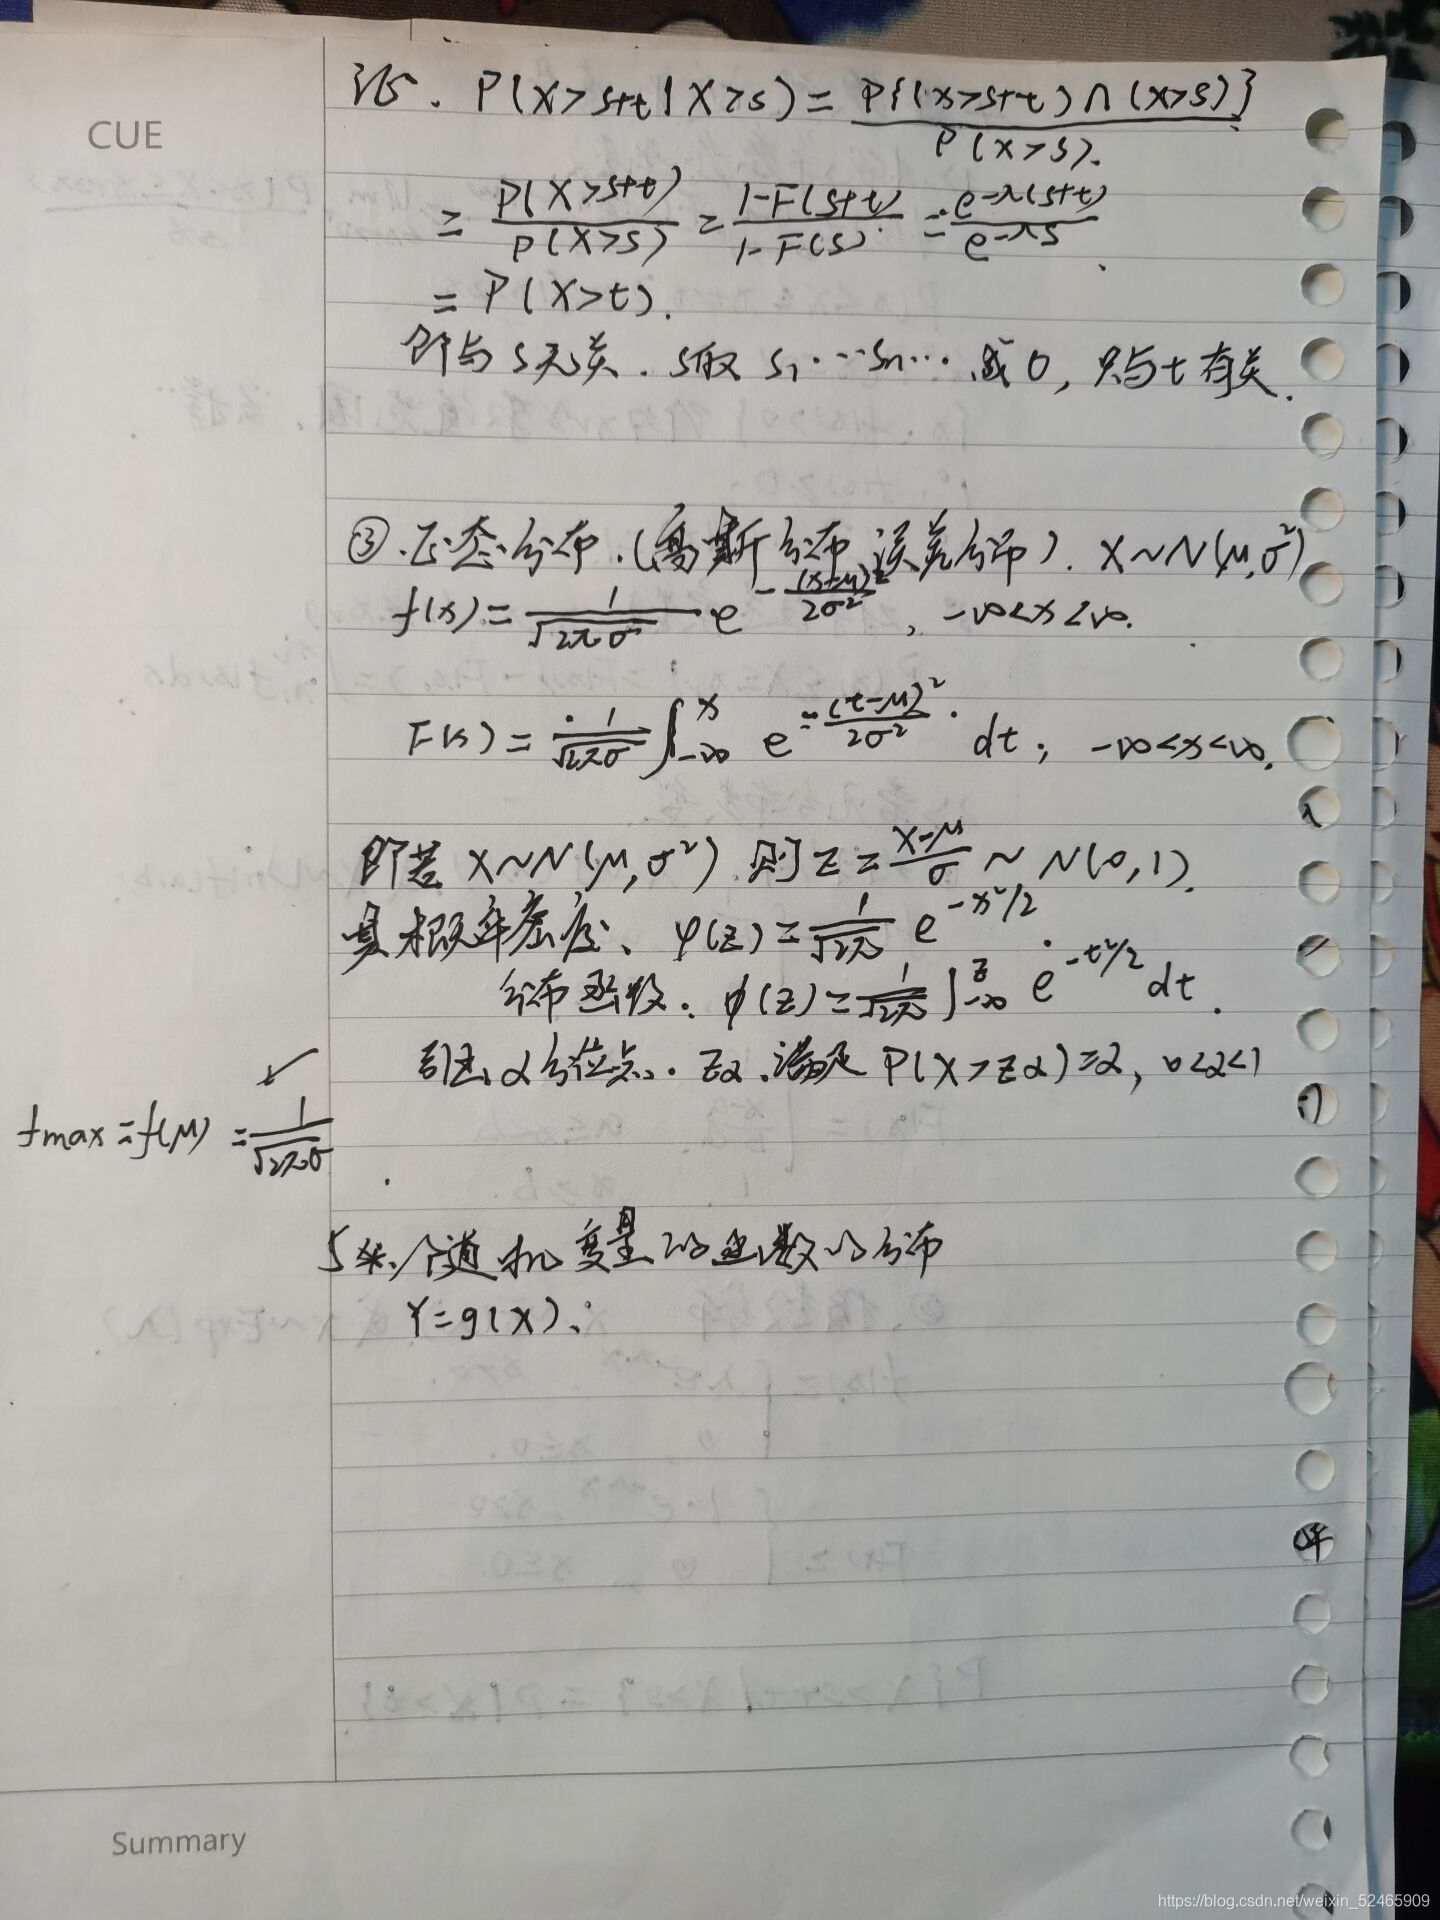 CUE
证. P(X>s+t|X>s) = P{(X>s+t)∩(X>s)} / P(X>s).
= P(X>s+t) / P(X>s) = 1-F(s+t) / 1-F(s) = e^{-λ(s+t)} / e^{-λs}
= P(X>t).
即与s无关. s取 s₁…sₙ… 或0, 只与t有关.
③.正态分布.(高斯分布 误差分布). X~N(μ,σ²)
f(x) = 1/√2πσ e^{-(x-μ)²/2σ²}, -∞<x<∞.
F(x) = 1/√2πσ ∫_{-∞}^{x} e^{-(t-μ)²/2σ²} dt, -∞<x<∞.
即若 X~N(μ,σ²) 则 Z = X-μ/σ ~ N(0,1).
其概率密度、φ(z) = 1/√2π e^{-x²/2}
分布函数. φ(z) = 1/√2π ∫_{-∞}^{z} e^{-t²/2} dt.
引出α分位点. Zα.满足 P(X>Zα)=α, 0<α<1
✓
fmax = f(μ) = 1/√2πσ
5 随机变量的函数的分布
Y=g(X).
Summary
https://blog.csdn.net/weixin_52465909